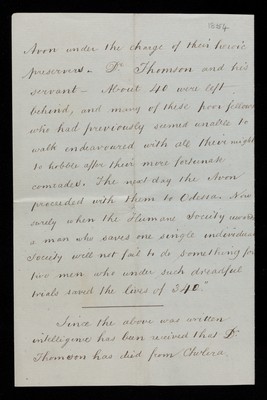 1854
Avon under the charge of their heroic
preservers. Dr Thomson and his
servant — About 40 were left
behind, and many of these poor fellows
who had previously seemed unable to
walk endeavoured with all their might
to hobble after their more fortunate
comrades. The next day the Avon
proceeded with them to Odessa. Now
surely when the Humane Society rewards
a man who saves one single individual
Society will not fail to do something for
two men who under such dreadful
trials saved the lives of 340."
Since the above was written
intelligence has been received that Dr
Thomson has died from Cholera.